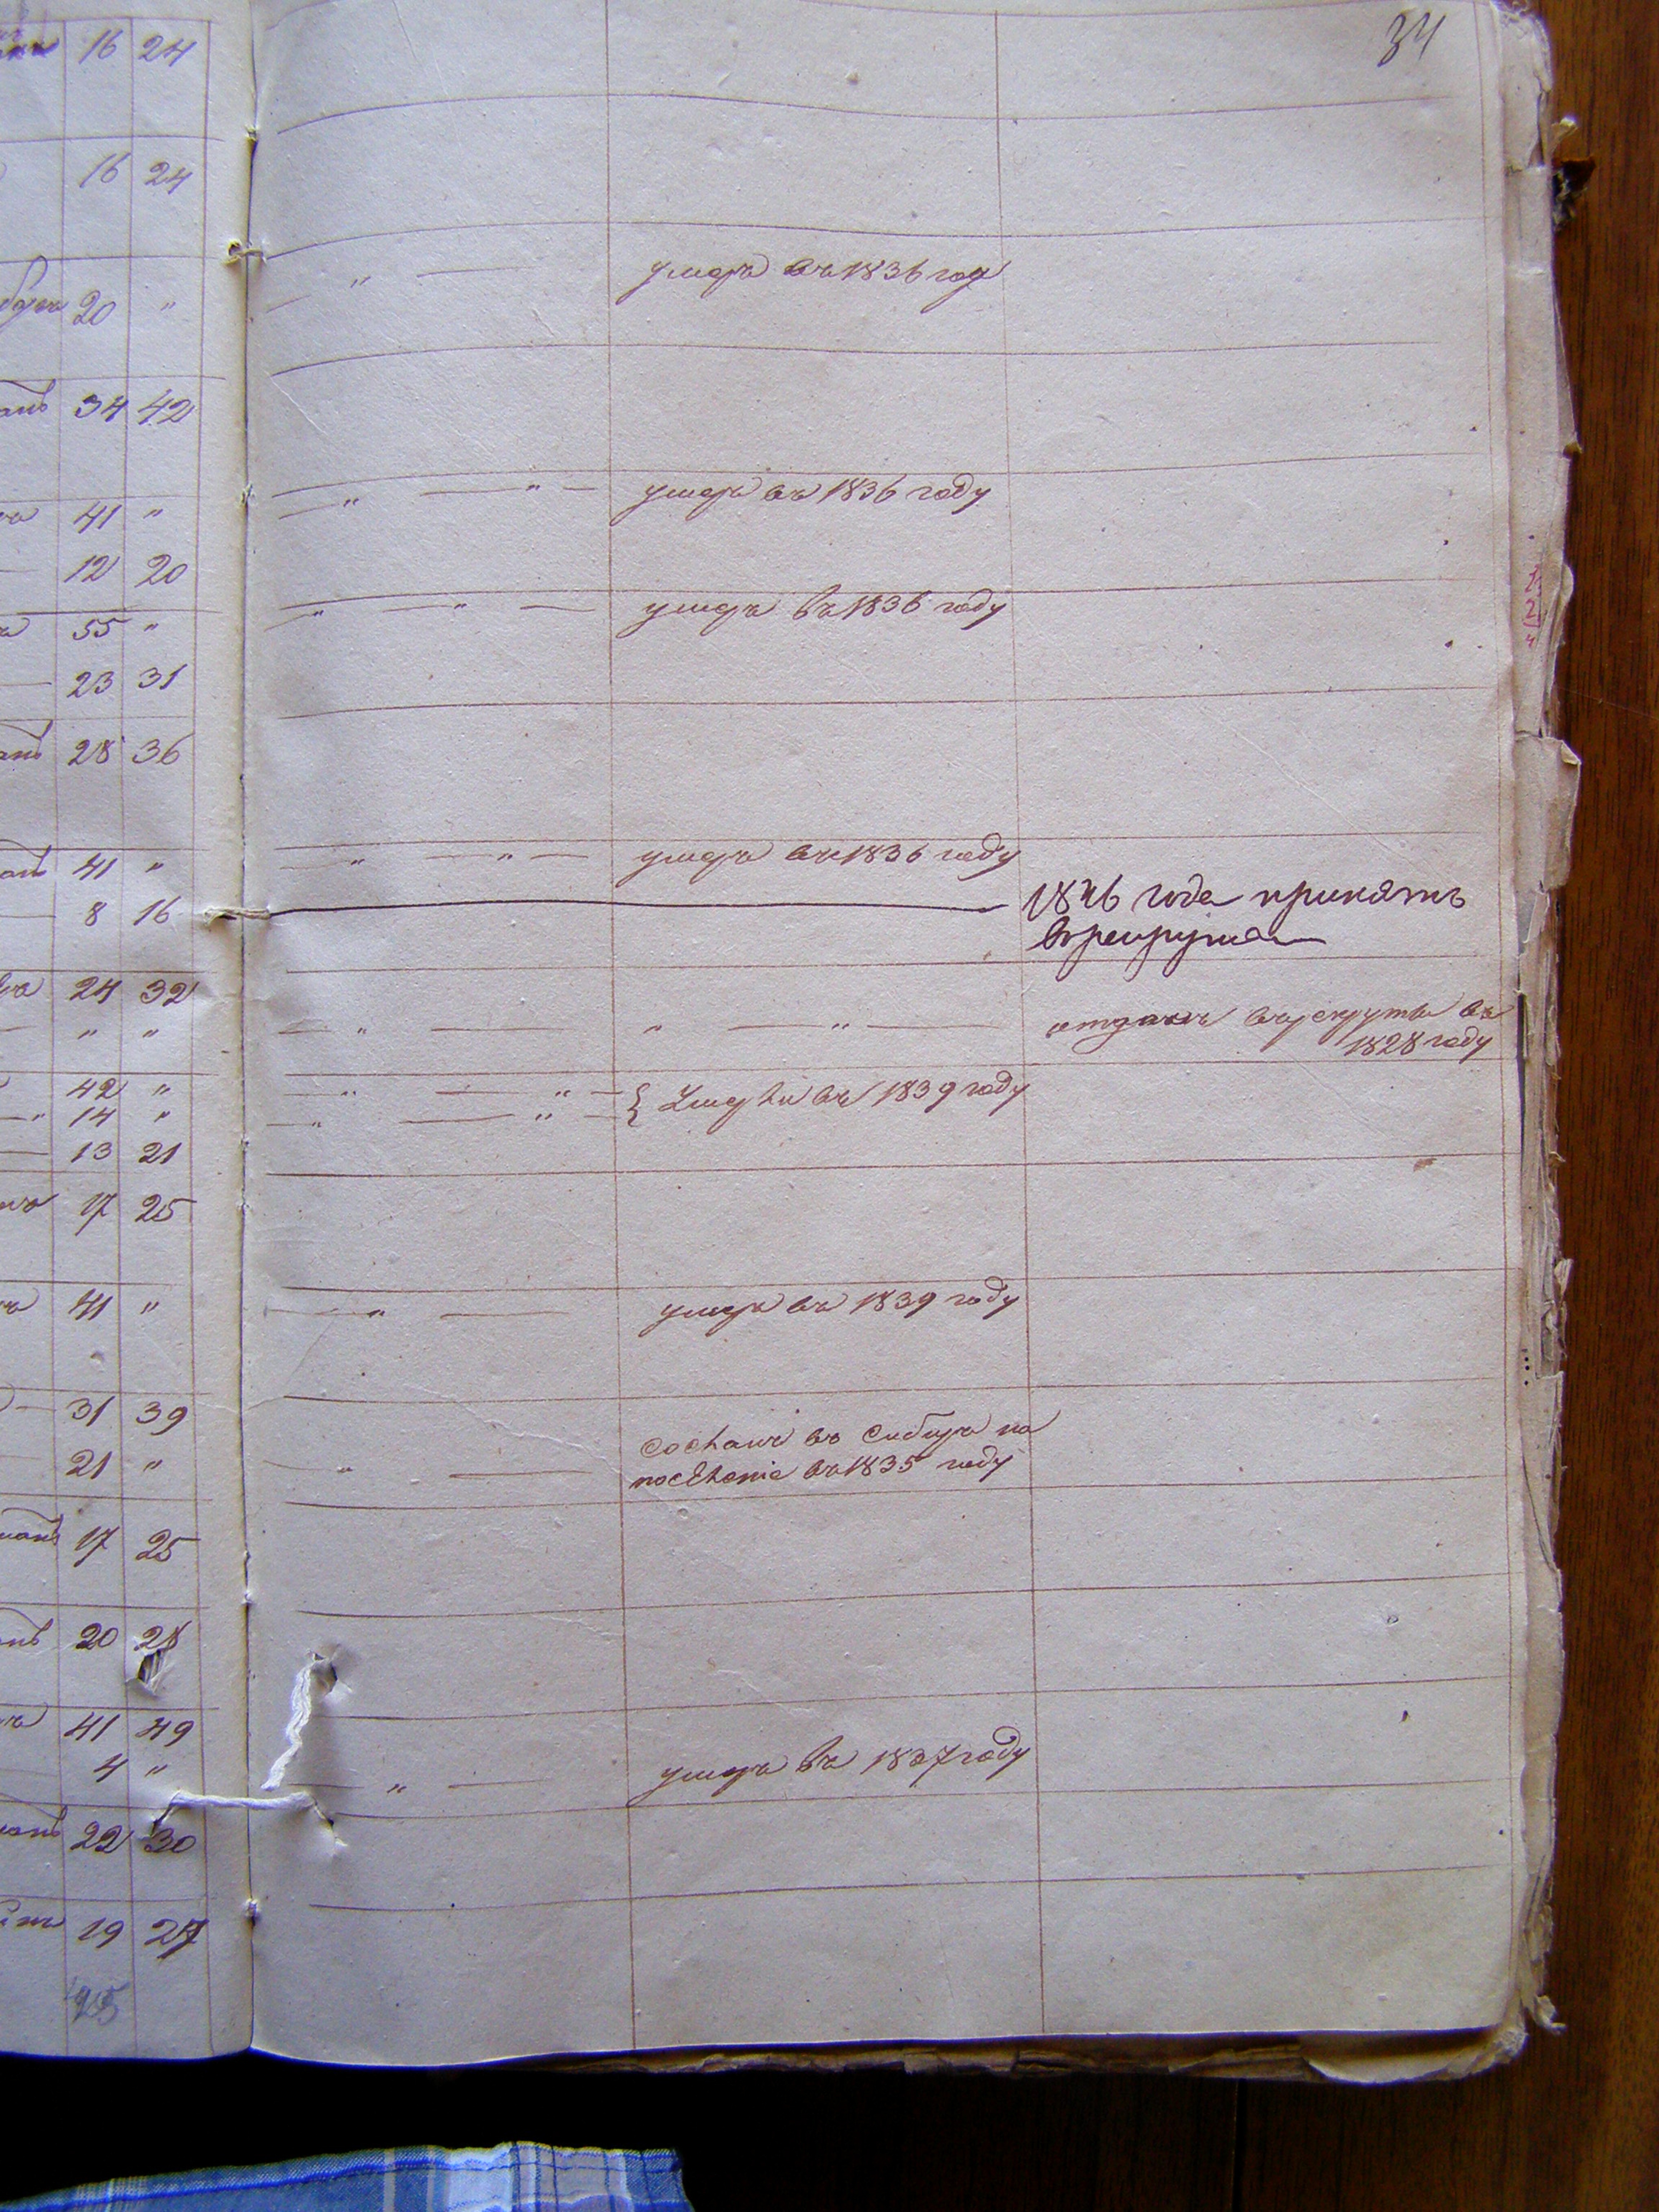 34
16 24
16 24
20 "
" — умеръ въ 1836 году
34 42
41 " — " — " — умеръ въ 1836 году
12 20
55 " — " — " — умеръ въ 1836 году
23 31
28 36
41 " — " — " — умеръ въ 1836 году
8 16 — 1846 года принятъ
въ рекрута
24 32
" " — " — " — " — отданъ въ рекруты въ
1828 году
42 " — " — " — { Умерли въ 1839 году
14 " — " — " —
13 21
17 25
41 " — " — умеръ въ 1839 году
31 39
сосланъ въ Сибирь на
21 " " — поселеніе въ 1835 году
17 25
20 28
41 49
4 " " — умеръ въ 1837 году
22 30
19 27